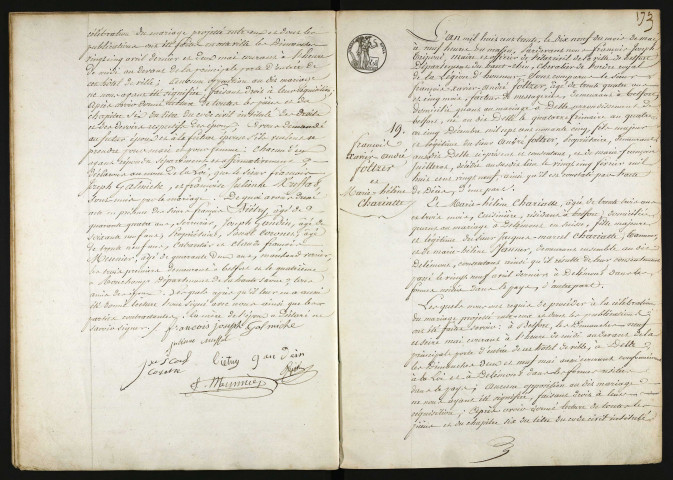 célébration du mariage projeté entre eux et dont les
publications ont été faites en cette ville les Dimanches
vingt cinq avril dernier et deux mai courant à l'heure
de midi au devant de la principale porte d'entrée de
cet hôtel de ville; aucune opposition au dit mariage
ne nous ayant été signifiée, faisant droit à leur réquisition,
après avoir donné lecture de toutes les pièces et du
chapitre six du titre du code civil intitulé des Droits
et des devoirs respectifs des époux, avons demandé
au futur époux et à la future épouse s'ils veulent se
prendre pour mari et pour femme: chacun d'eux
ayant répondu séparément et affirmativement,
Déclarons au nom de la loi, que le sieur françois
Joseph Galmiche, et françoise Julienne
sont unis par le mariage. De quoi avons dressé
acte en présence des sieurs françois âgé de
quarante quatre ans, Joseph âgé de
soixante neuf ans, Propriétaire, âgé
de trente neuf ans, et claude françois
Meunier, âgé de quarante deux ans,
les trois premiers demeurant à belfort et le quatrième
à Ronchamp Département de la haute saone,
lesquels après qu'il leur en a aussi
été donné lecture l'ont signé avec nous ainsi que les
parties contractantes, la mère de l'époux a déclaré ne
savoir signer.
françois Joseph Galmiche
f. Meunier
173
19.
françois
Xavier andré
foltzer
et
Marie-hélène
Chariatte
L'an mil huit cent trente, le Dix neuf du mois de mai
à neuf heures du matin, Pardevant nous françois Joseph
maire et officier de l'état civil de la ville de belfort
Département du haut-rhin, chevalier de l'ordre royal
de la Légion d'honneur, Sont comparus le Sieur
françois-xavier-andré foltzer, âgé de trente quatre ans
et cinq mois, facteur de messageries, demeurant à belfort,
Domicilié quant au mariage à Delle
belfort, né au dit Delle le quatorze frimaire an quatre
ou cinq Décembre mil sept cent quatre vingt quinze, fils majeur
et légitime du Sieur André foltzer, Propriétaire, demeurant
au dit Delle ci présent et consentant, et de marie françoise
décédée au dit lieu le vingt cinq février mil
huit cent vingt neuf, ainsi qu'il en conste par l'acte
de Décès, D'une part.
Et Marie-hélène Chariatte, âgée de trente trois ans
et trois mois, Cuisinière, résidant à belfort, domiciliée
quant au mariage à Delémont en Suisse, fille majeure
et légitime du Sieur jacques-marcel Chariatte,
et de marie-hélène demeurant ensemble au dit
Delémont, consentans ainsi qu'il résulte de leur consentement
passé le vingt neuf avril dernier à Delémont dans les
formes usitées dans le pays, D'autre part.
Lesquels nous ont requis de procéder à la célébration
du mariage projeté entre eux et dont les publications
ont été faites savoir: à belfort, les Dimanches neuf
et seize mai courant à l'heure de midi au devant de la
principale porte d'entrée de cet hôtel de ville, à Delle
les Dimanches Deux et neuf mai aussi courant conformément
à la loi et à Delémont dans les formes usitées
dans le pays; aucune opposition au dit mariage
ne nous ayant été signifiée, faisant droit à leur
réquisition, Après avoir donné lecture de toutes les
pièces et du chapitre six du titre du code civil intitulé